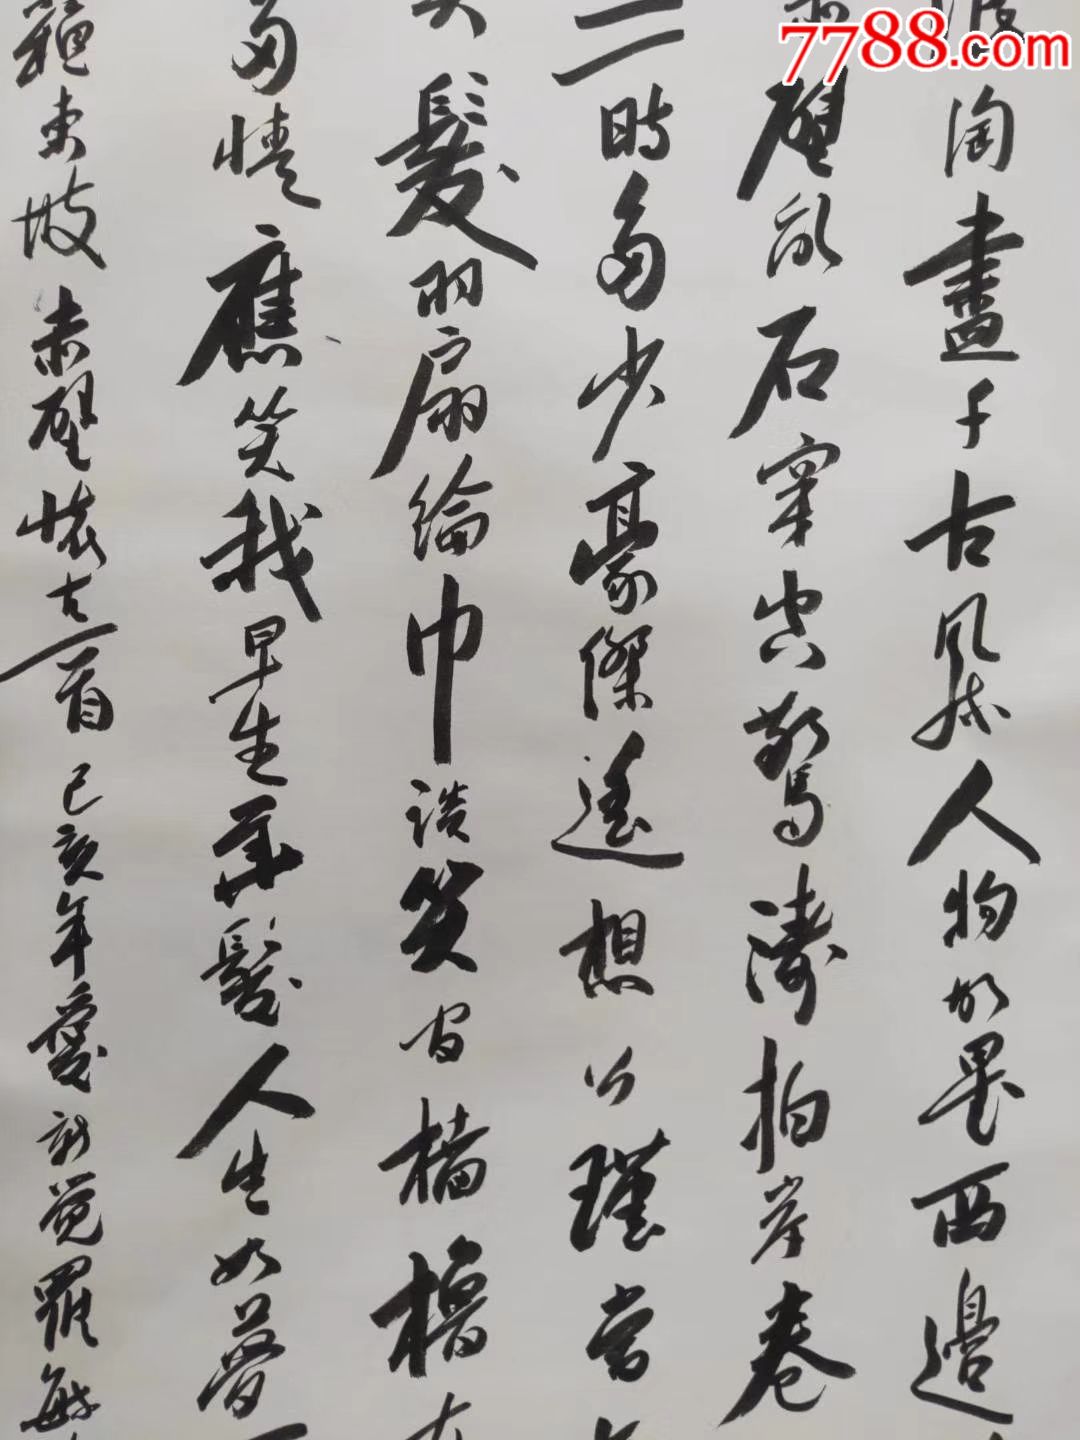 7788.com
浪淘盡千古風流人物故壘西邊
赤壁亂石穿空驚濤拍岸卷
一時多少豪傑遙想公瑾當年
英發羽扇綸巾談笑間檣櫓灰
多情應笑我早生華髮人生如夢一
東坡赤壁懷古一首己亥年愛新覺羅毓